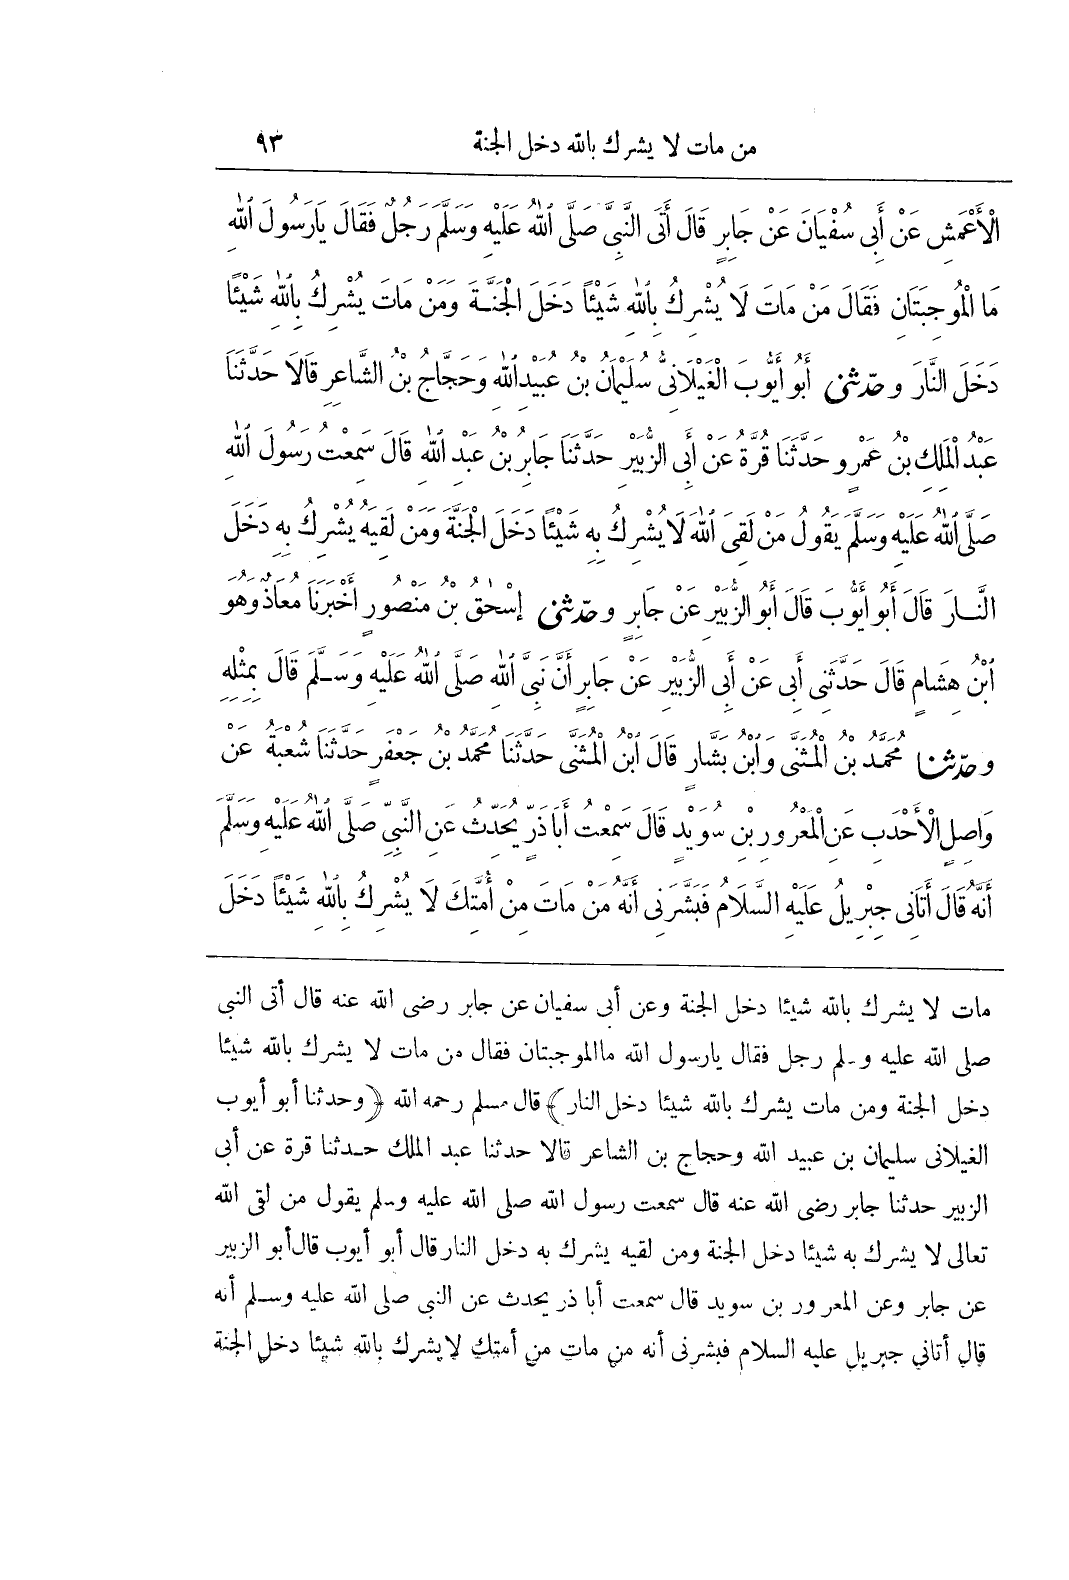 من مات لا يشرك بالله دخل الجنة ٩٣
الْأَعْمَشِ عَنْ أَبِى سُفْيَانَ عَنْ جَابِرٍ قَالَ أَتَى النَّبِىَّ صَلَّى اللهُ عَلَيْهِ وَسَلَّمَ رَجُلٌ فَقَالَ يَارَسُولَ اللهِ
مَا الْمُوجِبَتَانِ فَقَالَ مَنْ مَاتَ لَا يُشْرِكُ بِاللهِ شَيْئًا دَخَلَ الْجَنَّةَ وَمَنْ مَاتَ يُشْرِكُ بِاللهِ شَيْئًا
دَخَلَ النَّارَ وحَدَّثَنِى أَبُو أَيُّوبَ الْغَيْلَانِىُّ سُلَيْمَانُ بْنُ عُبَيْدِ اللهِ وَحَجَّاجُ بْنُ الشَّاعِرِ قَالَا حَدَّثَنَا
عَبْدُ الْمَلِكِ بْنُ عَمْرٍو حَدَّثَنَا قُرَّةُ عَنْ أَبِى الزُّبَيْرِ حَدَّثَنَا جَابِرُ بْنُ عَبْدِ اللهِ قَالَ سَمِعْتُ رَسُولَ اللهِ
صَلَّى اللهُ عَلَيْهِ وَسَلَّمَ يَقُولُ مَنْ لَقِىَ اللهَ لَا يُشْرِكُ بِهِ شَيْئًا دَخَلَ الْجَنَّةَ وَمَنْ لَقِيَهُ يُشْرِكُ بِهِ دَخَلَ
النَّارَ قَالَ أَبُو أَيُّوبَ قَالَ أَبُو الزُّبَيْرِ عَنْ جَابِرٍ وحَدَّثَنِى إِسْحٰقُ بْنُ مَنْصُورٍ أَخْبَرَنَا مُعَاذٌ وَهُوَ
ابْنُ هِشَامٍ قَالَ حَدَّثَنِى أَبِى عَنْ أَبِى الزُّبَيْرِ عَنْ جَابِرٍ أَنَّ نَبِىَّ اللهِ صَلَّى اللهُ عَلَيْهِ وَسَلَّمَ قَالَ بِمِثْلِهِ
وحَدَّثَنَا مُحَمَّدُ بْنُ الْمُثَنَّى وَابْنُ بَشَّارٍ قَالَ ابْنُ الْمُثَنَّى حَدَّثَنَا مُحَمَّدُ بْنُ جَعْفَرٍ حَدَّثَنَا شُعْبَةُ عَنْ
وَاصِلٍ الْأَحْدَبِ عَنِ الْمَعْرُورِ بْنِ سُوَيْدٍ قَالَ سَمِعْتُ أَبَا ذَرٍّ يُحَدِّثُ عَنِ النَّبِىِّ صَلَّى اللهُ عَلَيْهِ وَسَلَّمَ
أَنَّهُ قَالَ أَتَانِى جِبْرِيلُ عَلَيْهِ السَّلَامُ فَبَشَّرَنِى أَنَّهُ مَنْ مَاتَ مِنْ أُمَّتِكَ لَا يُشْرِكُ بِاللهِ شَيْئًا دَخَلَ
مات لا يشرك بالله شيئا دخل الجنة وعن أبى سفيان عن جابر رضى الله عنه قال أتى النبي
صلى الله عليه وسلم رجل فقال يارسول الله ماالموجبتان فقال من مات لا يشرك بالله شيئا
دخل الجنة ومن مات يشرك بالله شيئا دخل النار﴾ قال مسلم رحمه الله ﴿وحدثنا أبو أيوب
الغيلانى سليمان بن عبيد الله وحجاج بن الشاعر قالا حدثنا عبد الملك حدثنا قرة عن أبى
الزبير حدثنا جابر رضى الله عنه قال سمعت رسول الله صلى الله عليه وسلم يقول من لقى الله
تعالى لا يشرك به شيئا دخل الجنة ومن لقيه يشرك به دخل النار قال أبو أيوب قال أبو الزبير
عن جابر وعن المعرور بن سويد قال سمعت أبا ذر يحدث عن النبي صلى الله عليه وسلم أنه
قال أتاني جبريل عليه السلام فبشرنى أنه من مات من أمتك لا يشرك بالله شيئا دخل الجنة